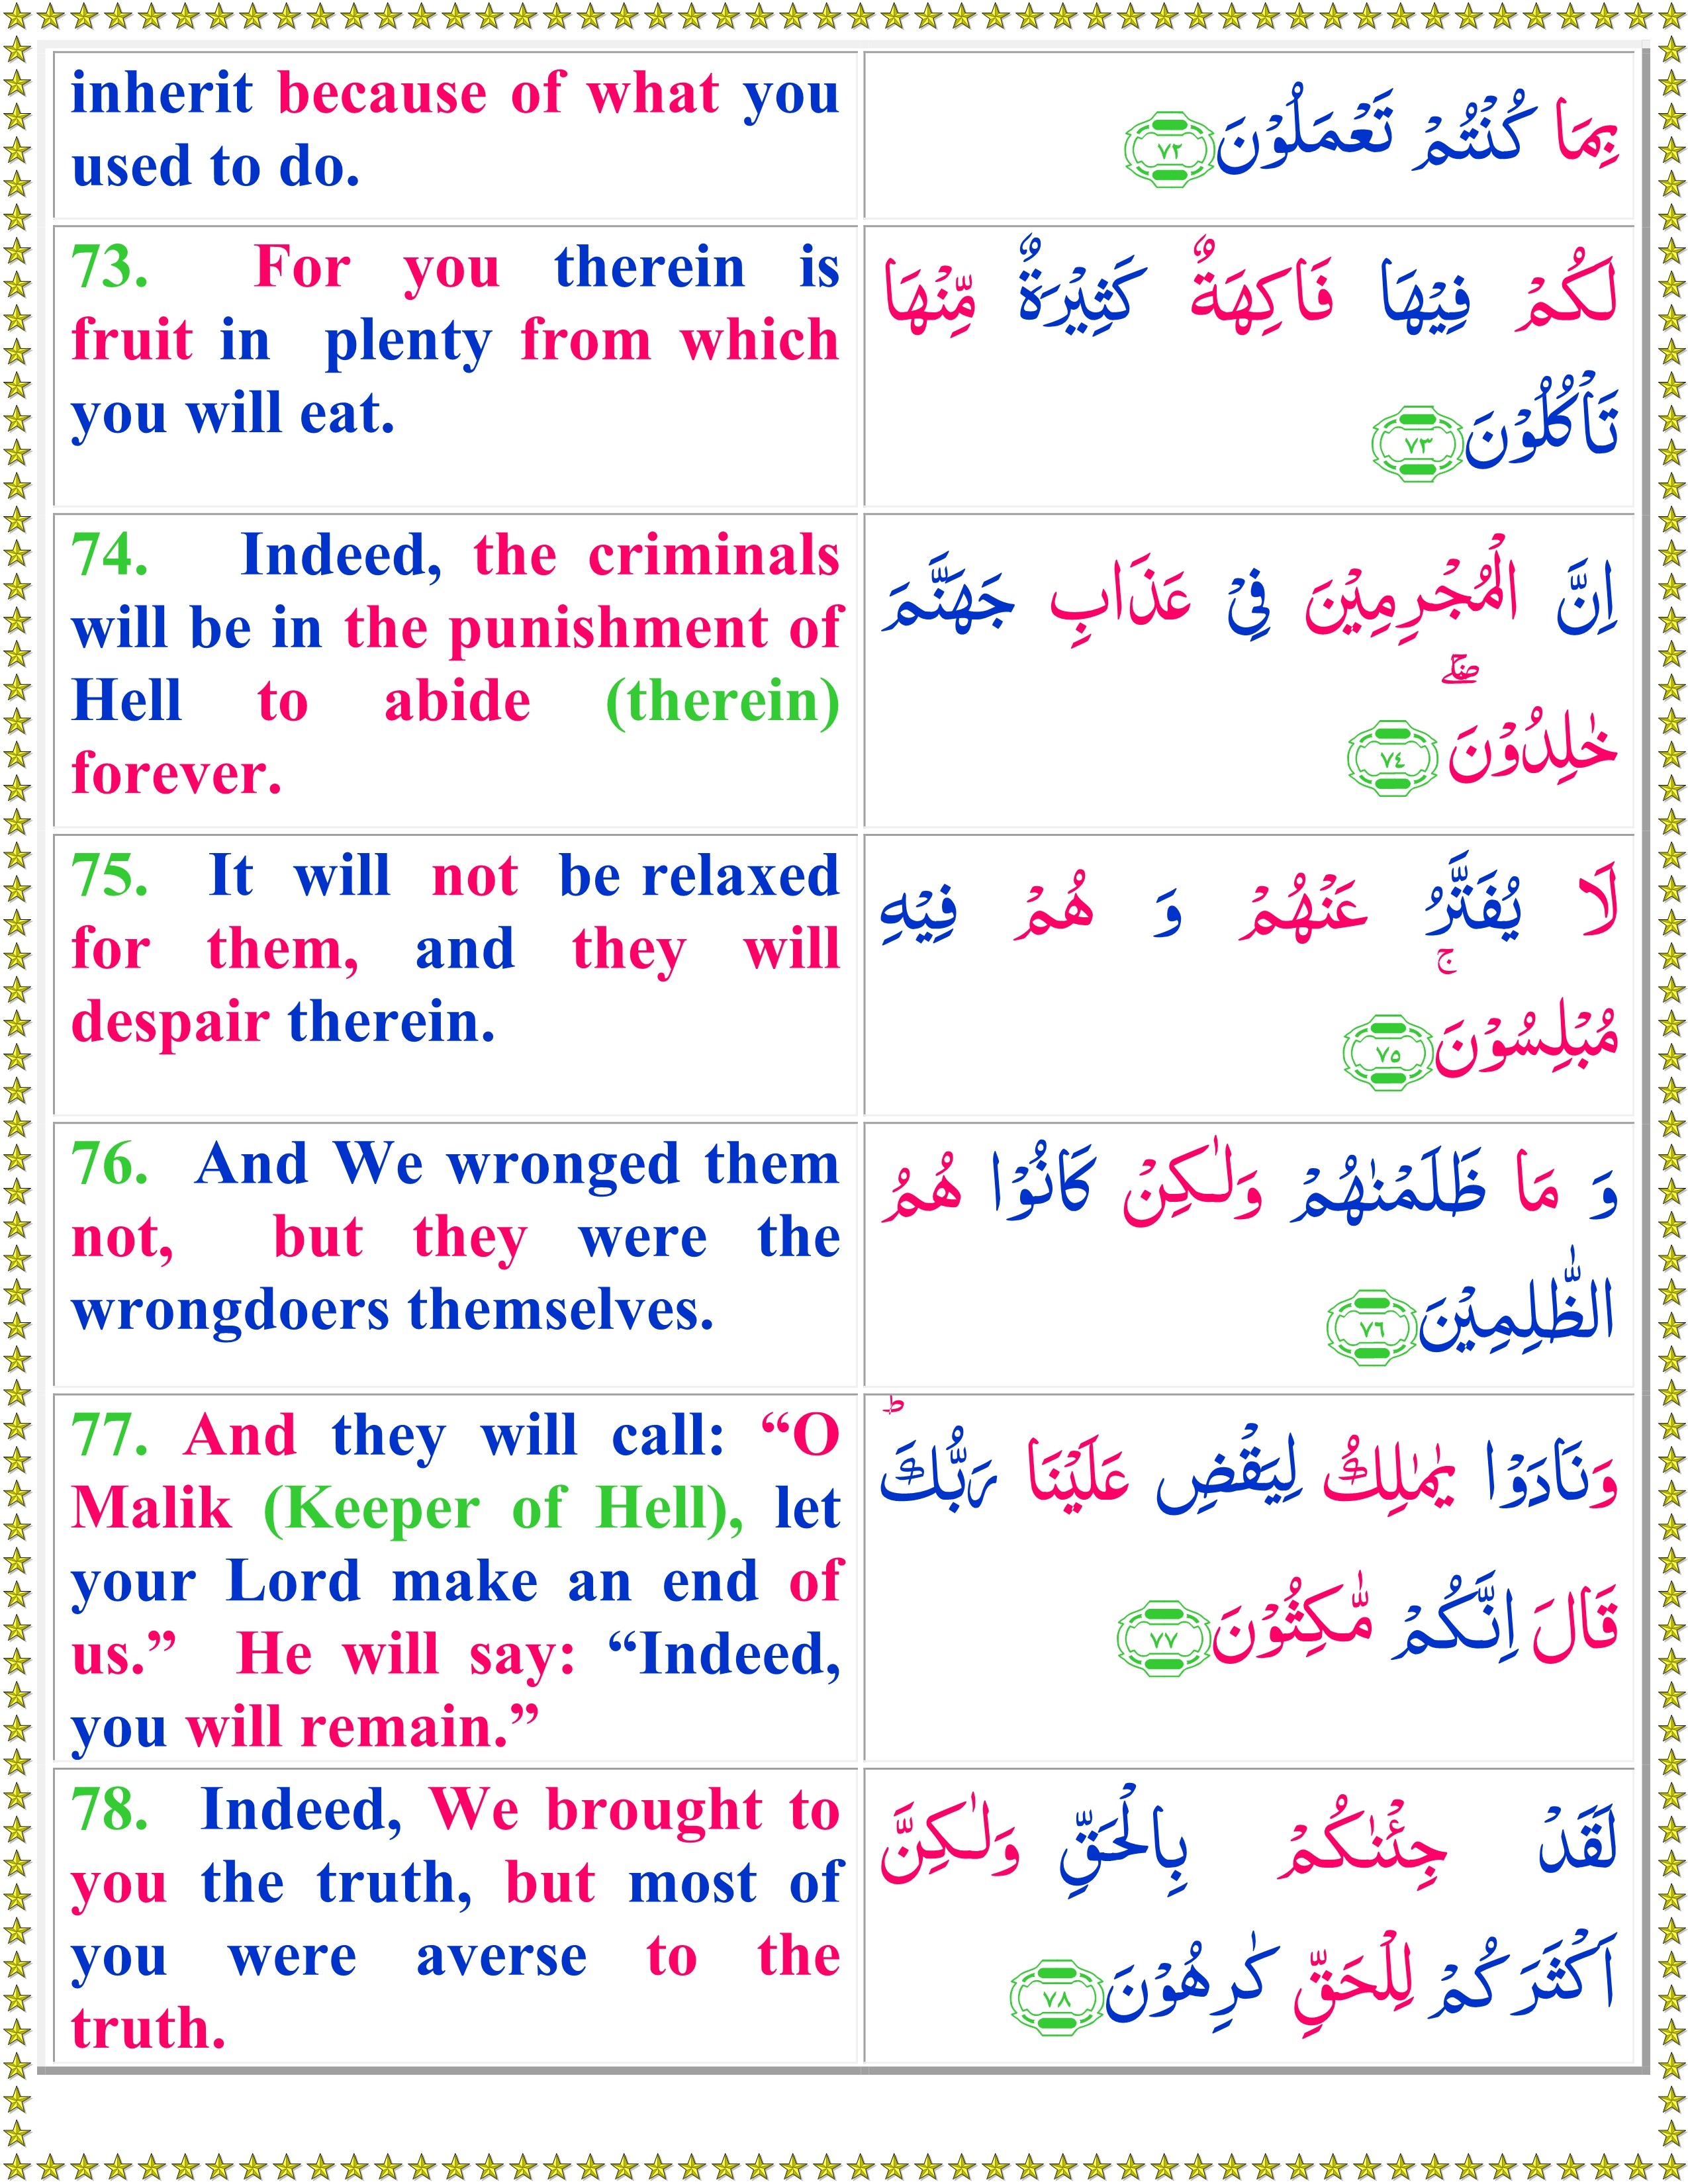 inherit because of what you
used to do.
بِمَا كُنْتُمْ تَعْمَلُوْنَ ٧٢
73. For you therein is
fruit in plenty from which
you will eat.
لَكُمْ فِيْهَا فَاكِهَةٌ كَثِيْرَةٌ مِّنْهَا
تَاْكُلُوْنَ ٧٣
74. Indeed, the criminals
will be in the punishment of
Hell to abide (therein)
forever.
اِنَّ الْمُجْرِمِيْنَ فِيْ عَذَابِ جَهَنَّمَ
خٰلِدُوْنَ ۖۚ ٧٤
75. It will not be relaxed
for them, and they will
despair therein.
لَا يُفَتَّرُ عَنْهُمْ وَ هُمْ فِيْهِ
مُبْلِسُوْنَ ۚ ٧٥
76. And We wronged them
not, but they were the
wrongdoers themselves.
وَ مَا ظَلَمْنٰهُمْ وَلٰـكِنْ كَانُوْا هُمُ
الظّٰلِمِيْنَ ٧٦
77. And they will call: “O
Malik (Keeper of Hell), let
your Lord make an end of
us.” He will say: “Indeed,
you will remain.”
وَنَادَوْا يٰمٰلِكُ لِيَقْضِ عَلَيْنَا رَبُّكَ ؕ
قَالَ اِنَّكُمْ مّٰكِثُوْنَ ٧٧
78. Indeed, We brought to
you the truth, but most of
you were averse to the
truth.
لَقَدْ جِئْنٰكُمْ بِالْحَقِّ وَلٰـكِنَّ
اَكْثَرَكُمْ لِلْحَقِّ كٰرِهُوْنَ ٧٨